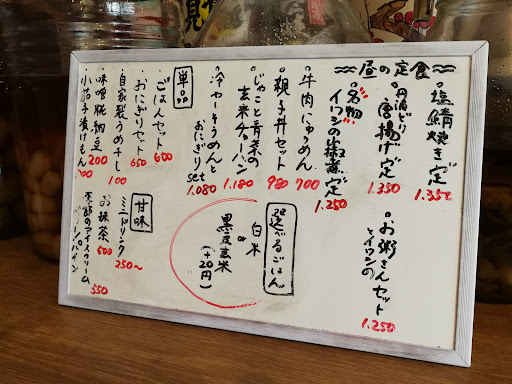 昼の定食
塩鯖焼き定
1.350
丹波どり
唐揚げ定
1.350
お粥さんセット
とイワシの
1.250
名物
イワシの生姜煮定
1.250
牛肉にゅうめん
700
親子丼セット
980
じゃこと青菜の
玄米チャーハン
1.180
冷やーそうめんと
おにぎりset
1.080
選べるごはん
白米
or
黒豆玄米
(+20円)
単品
ごはんセット
600
おにぎりセット
650
自家製うめ干し
100
味噌糀納豆
200
小茄子漬けもん
甘味
ミニドリンク
250~
お抹茶
500
季節のアイスクリーム
550